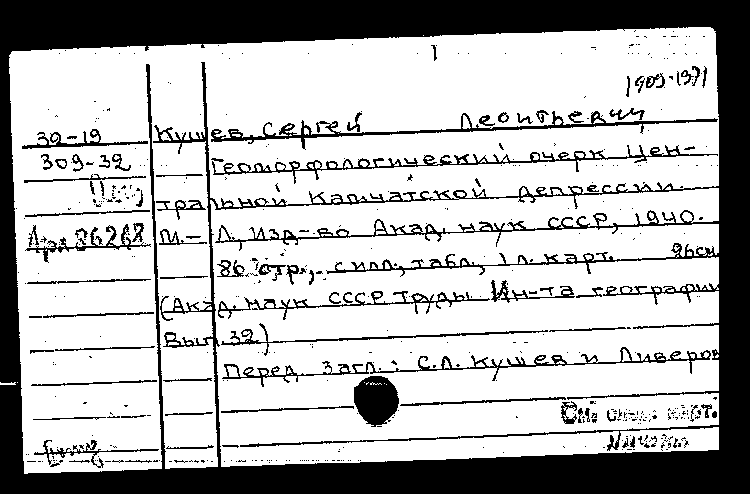 1909-1971
39-19 Кушев, Сергей Леонтьевич
309-32 Геоморфологический очерк Цен-
тральной Камчатской депрессии.
Арх 86268 М.-Л., Изд-во Акад. наук СССР, 1940.
86 стр., с илл., табл., 1 л. карт. 26см
(Акад. наук СССР. Труды Ин-та географии
Вып. 32)
Перед загл.: С.Л. Кушев и Ливеров
См. след. карт.